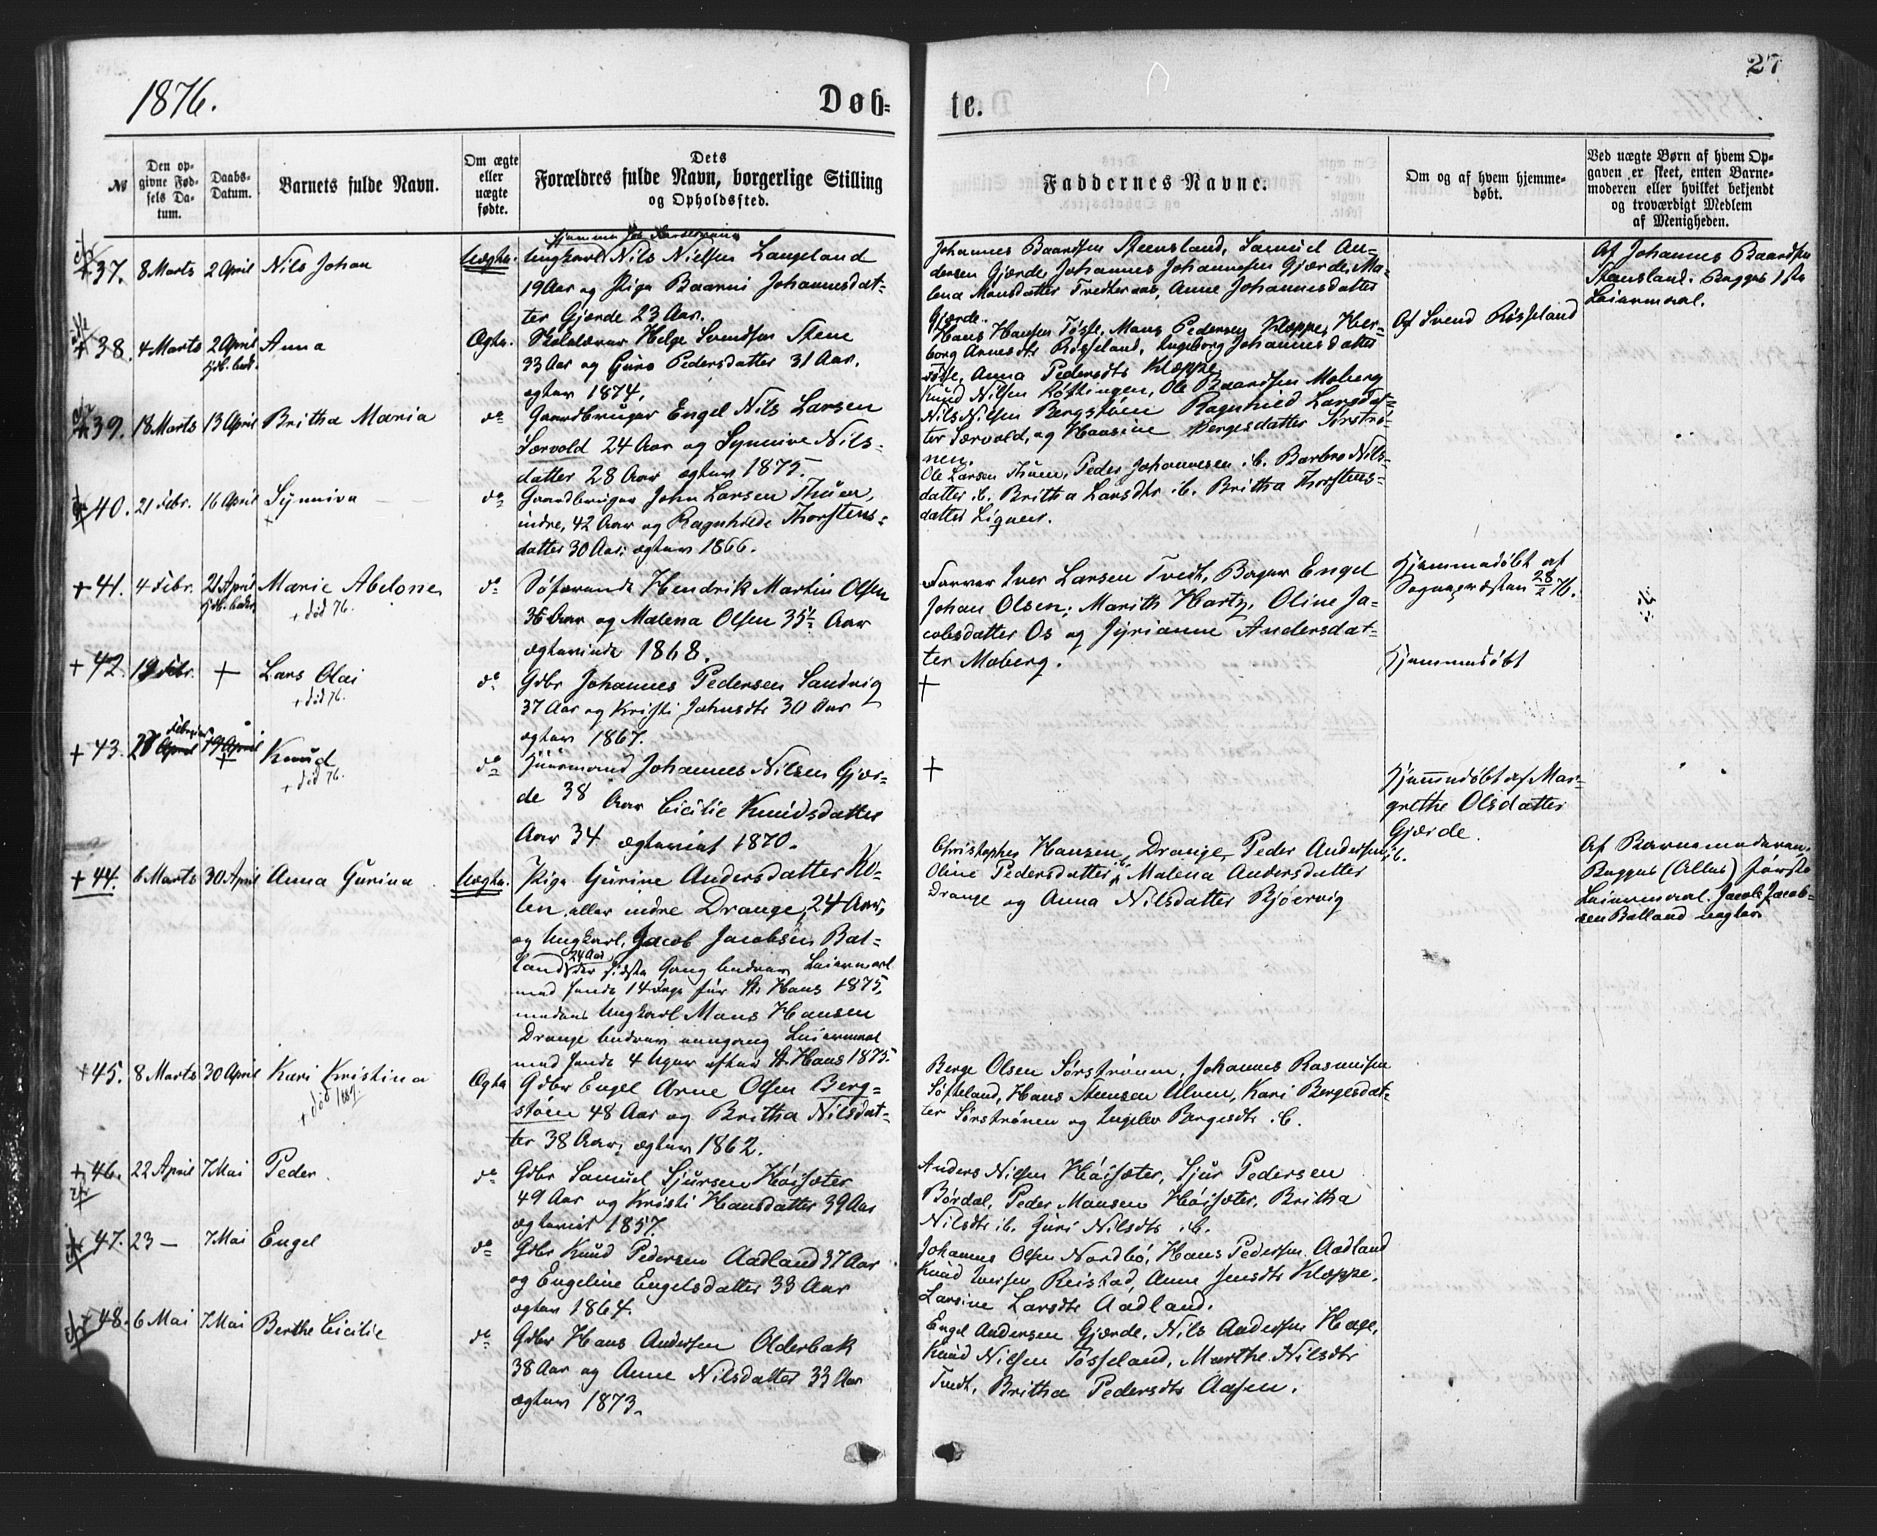 1876.
Døb-
te.
27
№
Den op-
givne Fød-
sels Da-
tum.
Daabs-
Datum.
Barnets fulde Navn.
Om ægte
eller
uægte
fødte.
Dets
Forældres fulde Navn, borgerlige Stilling
og Opholdssted.
Faddernes Navne.
Om og af hvem hjemme-
døbt.
Ved uægte Børn af hvem Op-
gaven er skeet, enten Barne-
moderen eller hvilket bekjendt
og troværdigt Medlem
af Menigheden.
37. 8 Marts 2 April Nils Johan Uægte.
Ungkarl Nils Nielsen Langeland
19 Aar og Pige Baarni Johannesdat-
ter Gjerde 23 Aar.
Johannes Baardsen Steensland, Samuel An-
dersen Gjerde, Johannes Johannesen Gjærde, Ma-
lena Monsdatter Tvedteraas, Anne Johannesdatter
Gjerde.
Af Johannes Baardsen
Stensland. Begges 1ste
Leiermaal.
38. 4 Marts 2 April Anna Ægte.
Skolelærer Helge Svendsen Stene
33 Aar og Guro Pedersdatter 31 Aar.
ægtev 1874.
Hans Hansen Tøsse, Mons Pedersen Kleppe, Her-
borg Arnesdtr Røsseland, Ingeborg Johannesdatter
Tøsse, Anna Pedersdtr Kleppe
Af Svend Røsseland
39. 18 Marts 13 April Britha Maria do
Gaardbruger Engel Nils Larsen
Særvold 24 Aar og Synnive Nils-
datter 28 Aar ægtev 1875.
Knud Nilsen Løttingen, Ole Baardsen Moberg
Nils Nilsen Bergstøen Ragnhild Larsdat-
ter Særvold, og Hansine Bergesdatter Sørstrø-
nen.
40. 21 Febr. 16 April Synniva do
Gaardbruger John Larsen Thuen,
indre, 42 Aar og Ragnhilde Thorstens-
datter 30 Aar. ægtev 1866.
Ole Larsen Thuen, Peder Johannesen ib. Barbro Nils-
datter ib. Britha Larsdtr ib. Britha Thorstens-
datter Lignes.
+ 41. 4 Febr. 21 April Marie Abelone do
+ død 76.
Søfarende Hendrik Martin Olsen
36 Aar og Malena Olsen 35½ Aar
ægteviede 1868.
Farver Iver Larsen Tvedt, Bager Engel
Johan Olsen, Marith Hartz, Oline Ja-
cobsdatter Os og Jyrianne Andersdat-
ter Moberg.
Hjemmedøbt af
Sognepræsten 28/2 76.
+ 42. 19 Febr. + Lars Olai do
+ død 76.
Gdbr Johannes Pedersen Sandvig
37 Aar og Kristi Johnsdtr 30 Aar
ægtev 1867.
+
Hjemmedøbt
+ 43. Februar Knud do
+ død 76.
Huusmand Johannes Nilsen Gjær-
de 38 Aar Cicilie Knudsdatter
Aar 34 ægteviet 1870.
+
Hjemmedøbt af Mar-
grethe Olsdatter
Gjærde.
+ 44. 6 Marts 30 April Anna Gurina Uægte.
Pige Gurine Andersdatter Ko-
len eller indre Drange, 24 Aar,
og Ungkarl Jacob Jacobsen Bal-
land 24 Aar der sidste Gang bedrev Leiermaal
med hende 14 Dage før St. Hans 1875,
medens Ungkarl Mons Hansen
Drange bedrev eengang Leiermaal
med hende 4 Uger efter St. Hans 1875
Christopher Hansen Drange, Peder Andersen ib.
Oline Pedersdatter ib. Malena Andersdatter
Drange og Anna Nilsdatter Bjøervig
Af Barnemoderen.
Begges (Alles) første
Leiermaal. Jacob Jacob-
sen Balland negter
+ 45. 8 Marts 30 April Kari Kristina Ægte
+ død 1887.
Gdbr Engel Arne Olsen Berg-
støen 48 Aar og Britha Nilsdat-
ter 38 Aar, ægtev 1862.
Berge Olsen Sørstrønen, Johannes Rasmusen
Søfteland, Hans Steensen Ulven, Kari Bergesdat-
ter Sørstrønen og Ingeb Bergesdtr ib.
+ 46. 22 April 7 Mai Peder. do
Gdbr Samuel Sjursen Høisæter
49 Aar og Kristi Hansdatter 39 Aar
ægteviet 1857.
Anders Nilsen Høisæter, Sjur Pedersen
Børdal, Peder Monsen Høisæter, Britha
Nilsdtr ib. Guri Nilsdtr ib.
47. 23 — 7 Mai Engel do
Gdbr Knud Pedersen Aadland 37 Aar
og Engeline Engelsdatter 33 Aar
ægtev 1864.
Johannes Olsen Nordbø, Hans Pedersen Aadland
Knud Iversen Reistad, Anne Jensdtr Kleppe,
Larsine Larsdtr Aadland.
48. 6 Mai 7 Mai Berthe Cicilie do
Gdbr Hans Andersen Olderbak
38 Aar og Anne Nilsdatter 33 Aar
ægtev 1873.
Engel Andersen Gjærde, Nils Andersen Hage,
Knud Nilsen Tøsseland, Marthe Nilsdtr
Tvedt, Britha Pedersdtr Aasen.